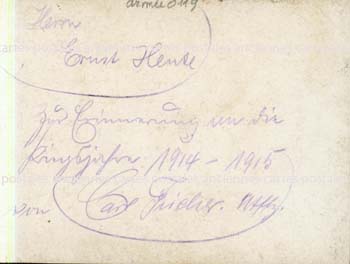 armée 0119
Herrn
Ernst Hente
Zur Erinnerung an die
Kriegsjahre 1914 - 1915
von Carl Fricher. Uffz.